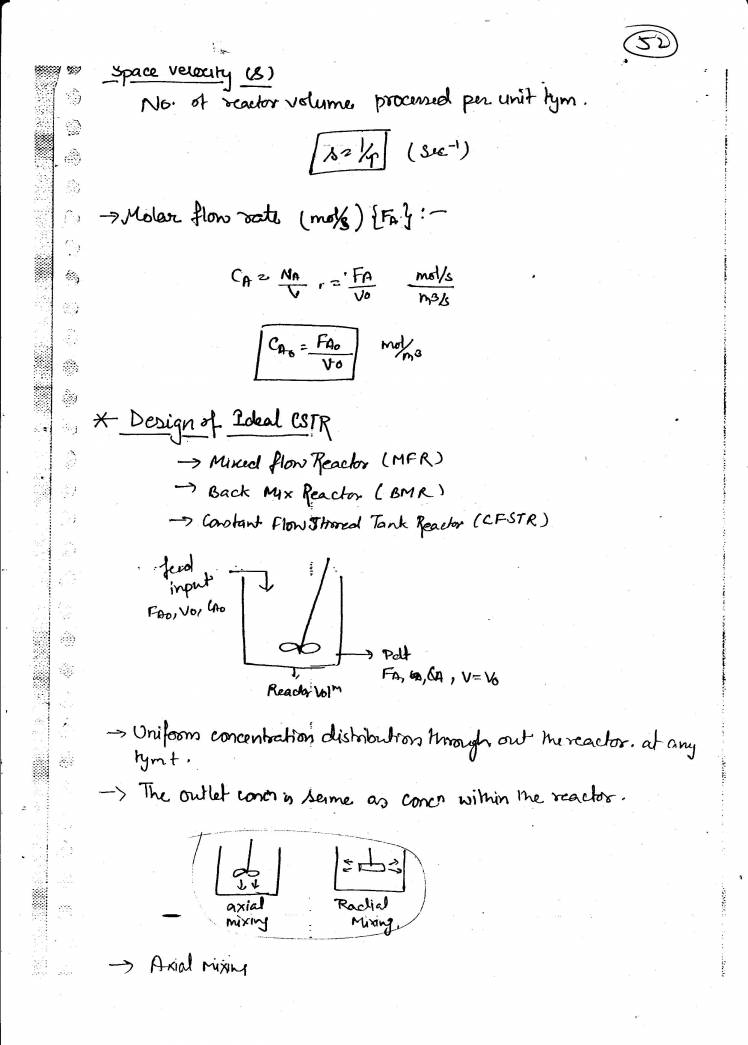 52
Space Velocity (s)
No. of reactor volume, processed per unit tym.
s = 1/τ (Sec⁻¹)
→ Molar flow rate (mol/s) {FA} :-
CA = NA/V , = FA/V0 mol/s / m³/s
CA0 = FA0/V0 mol/m³
* Design of Ideal CSTR
→ Mixed flow Reactor (MFR)
→ Back Mix Reactor (BMR)
→ Constant Flow Stirred Tank Reactor (CFSTR)
feed
input
FA0, V0, CA0
→ Pdt
FA, CA, V=V0
Reactor Volm
→ Uniform concentration distribution through out the reactor. at any
tym t.
→ The outlet concn is same as concn within the reactor.
axial
mixing
Radial
Mixing
→ Axial Mixing